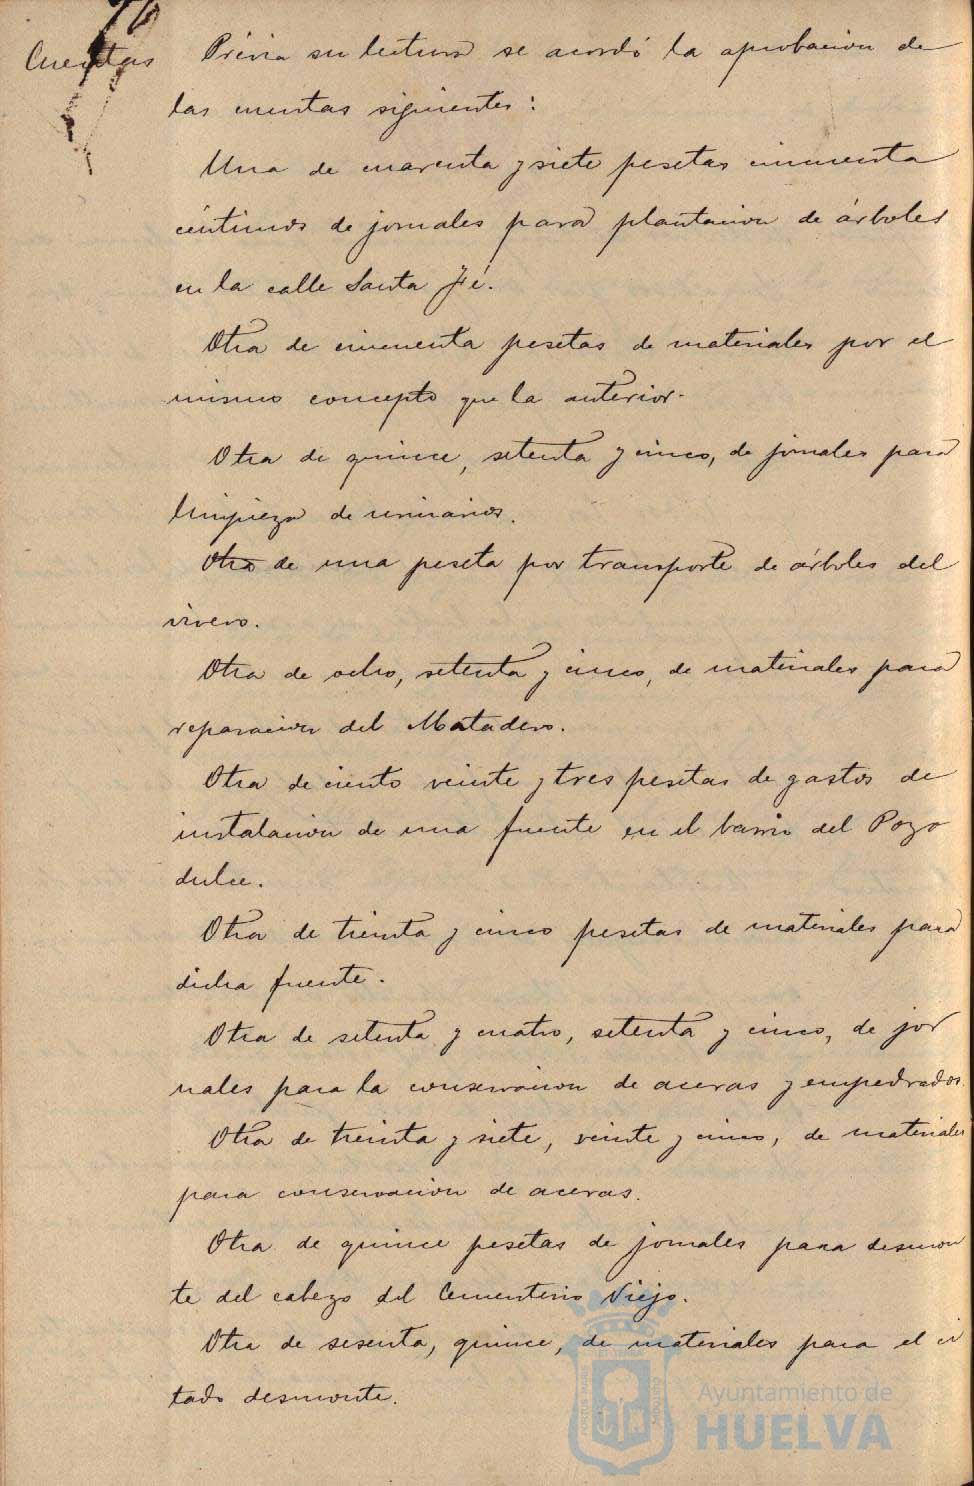 Cuentas Prévia su lectura se acordó la aprobacion de
las cuentas siguientes:
Una de cuarenta y siete pesetas cincuenta
céntimos de jornales para plantacion de árboles
en la calle Santa Fé.
Otra de cincuenta pesetas de materiales por el
mismo concepto que la anterior.
Otra de quince, setenta y cinco, de jornales para
limpieza de urinarios.
Otra de una peseta por transporte de árboles del
vivero.
Otra de ocho, setenta y cinco, de materiales para
reparacion del Matadero.
Otra de ciento veinte y tres pesetas de gastos de
instalacion de una fuente en el barrio del Pozo
dulce.
Otra de treinta y cinco pesetas de materiales para
dicha fuente.
Otra de setenta y cuatro, setenta y cinco, de jor
nales para la conservacion de aceras y empedrados.
Otra de treinta y siete, veinte y cinco, de materiales
para conservacion de aceras.
Otra de quince pesetas de jornales para desmon
te del cabezo del Cementerio Viejo.
Otra de sesenta, quince, de materiales para el ci
tado desmonte.
Ayuntamiento de
HUELVA